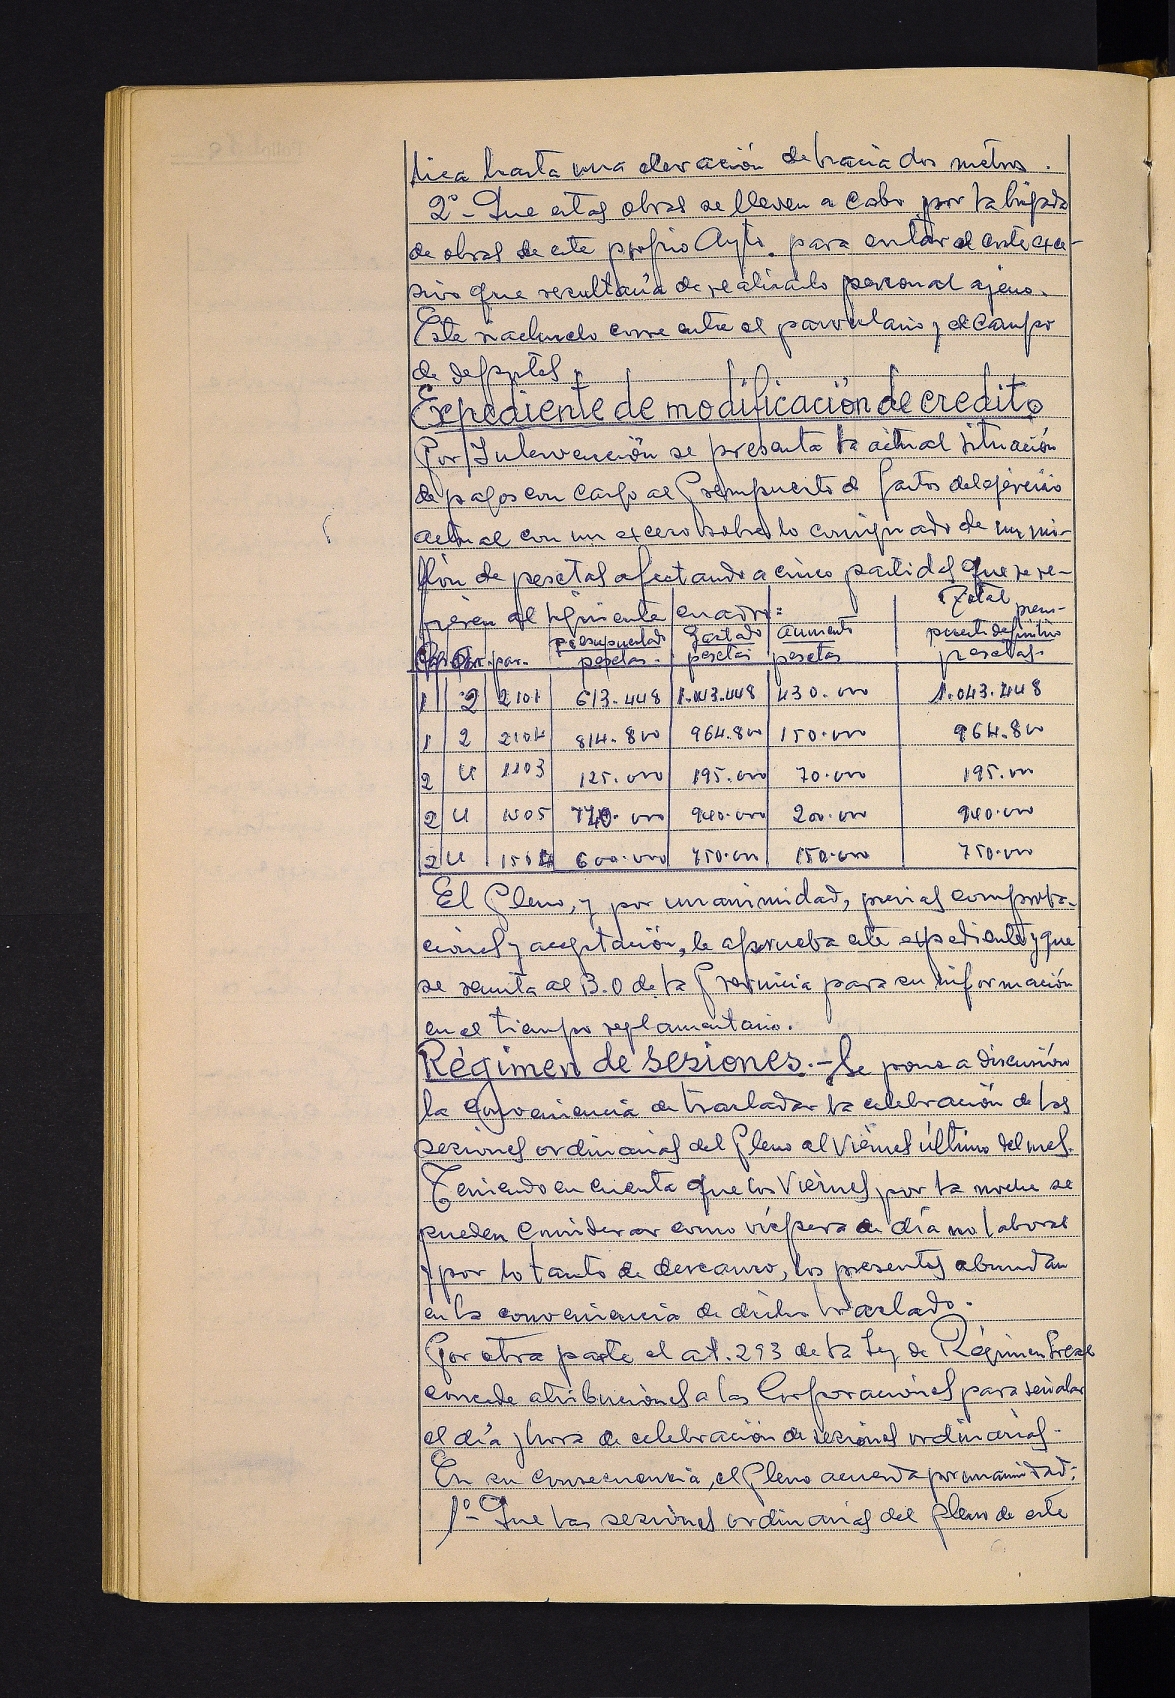 lica hasta una elevación de hacia dos metros.
2º- Que estas obras se lleven a cabo por la brigada
de obras de este propio Ayto. para evitar el coste exce-
sivo que resultaría de realizarlo personal ajeno.
Este riachuelo corre entre el parvulario y el campo
de deportes.
Expediente de modificación de credito
Por Intervención se presenta la actual situación
de pagos con cargo al Presupuesto de gastos del ejercicio
actual con un exceso sobre lo consignado de un mi-
llón de pesetas afectando a cinco partidas que se re-
fieren al siguiente cuadro:
Cap. Art. par. presupuestado pesetas. Gastado pesetas aumento pesetas Total presu- puesto definitivo pesetas.
1 2 2101 613.448 1.043.448 430.000 1.043.448
1 2 2104 814.800 964.800 150.000 964.800
2 U 1103 125.000 195.000 70.000 195.000
2 U 1505 740.000 940.000 200.000 940.000
2 U 1504 600.000 750.000 150.000 750.000
El Pleno, y por unanimidad, previas comproba-
ciones y aceptación, le aprueba este expediente y que
se remita al B.O de la Provincia para su información
en el tiempo reglamentario.
Régimen de sesiones.- Se pone a discusión
la conveniencia de trasladar la celebración de las
sesiones ordinarias del Pleno al Viernes último del mes.
Teniendo en cuenta que los Viernes por la noche se
pueden considerar como víspera de día no laboral
y por lo tanto de descanso, los presentes abundan
en la conveniencia de dicho traslado.
Por otra parte el art. 293 de la Ley de Régimen Local
concede atribuciones a las Corporaciones para señalar
el día y hora de celebración de sesiones ordinarias.
En su consecuencia, el Pleno acuerda por unanimidad:
1º- Que las sesiones ordinarias del pleno de este